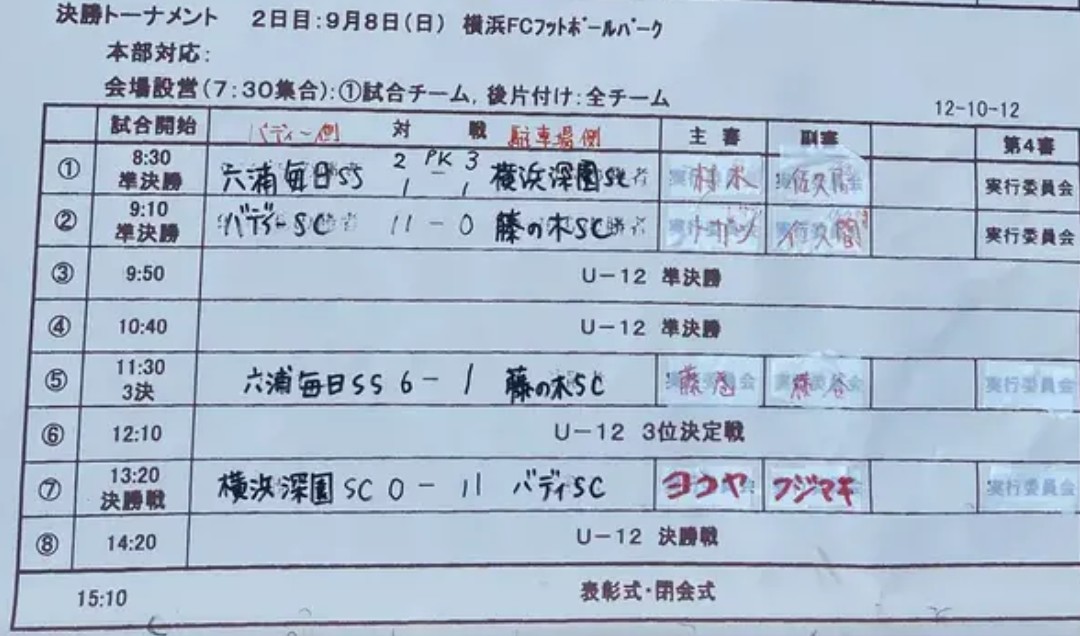 決勝トーナメント 2日目:9月8日(日) 横浜FCフットボールパーク
本部対応:
会場設営(7:30集合):①試合チーム, 後片付け:全チーム
12-10-12
試合開始 バディー側 対 戦 駐車場側 主審 副審 第4審
① 8:30 準決勝 六浦毎日SS 2 PK 3 1 - 1 横浜深園SC 実行委員会
② 9:10 準決勝 バディーSC 11 - 0 藤の木SC 実行委員会
③ 9:50 U-12 準決勝
④ 10:40 U-12 準決勝
⑤ 11:30 3決 六浦毎日SS 6 - 1 藤の木SC 実行委員会
⑥ 12:10 U-12 3位決定戦
⑦ 13:20 決勝戦 横浜深園SC 0 - 11 バディSC ヨコヤ フジマキ 実行委員会
⑧ 14:20 U-12 決勝戦
15:10 表彰式・閉会式